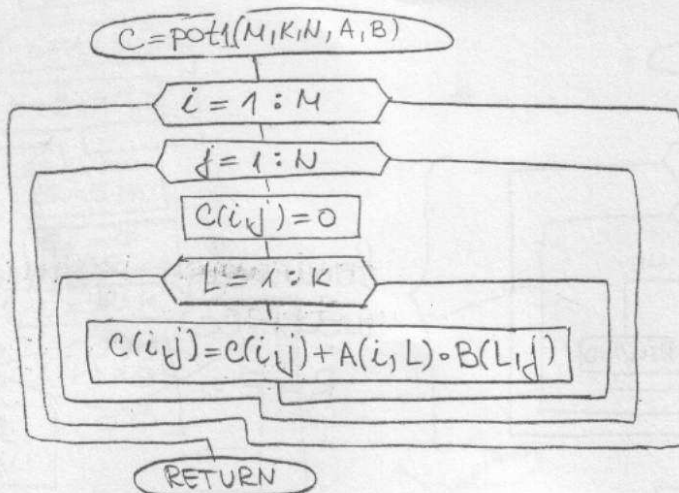 C=pot1(M,K,N,A,B)
i=1:M
j=1:N
C(i,j)=0
L=1:K
C(i,j)=C(i,j)+A(i,L)∘B(L,j)
RETURN